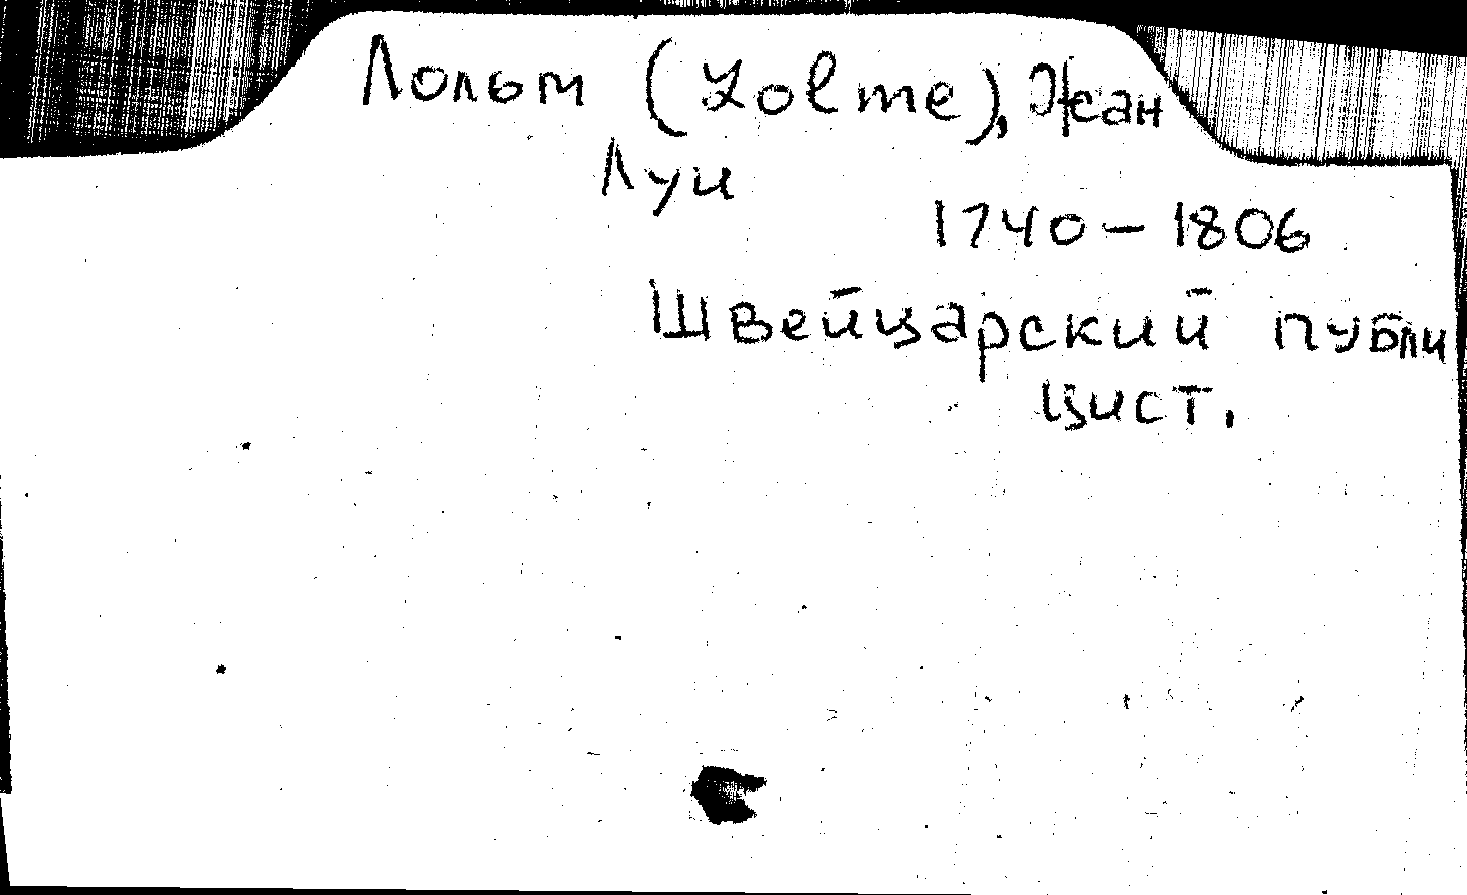 Лольм (Lolme), Жан
Луи
1740 – 1806
Швейцарский публи
цист.